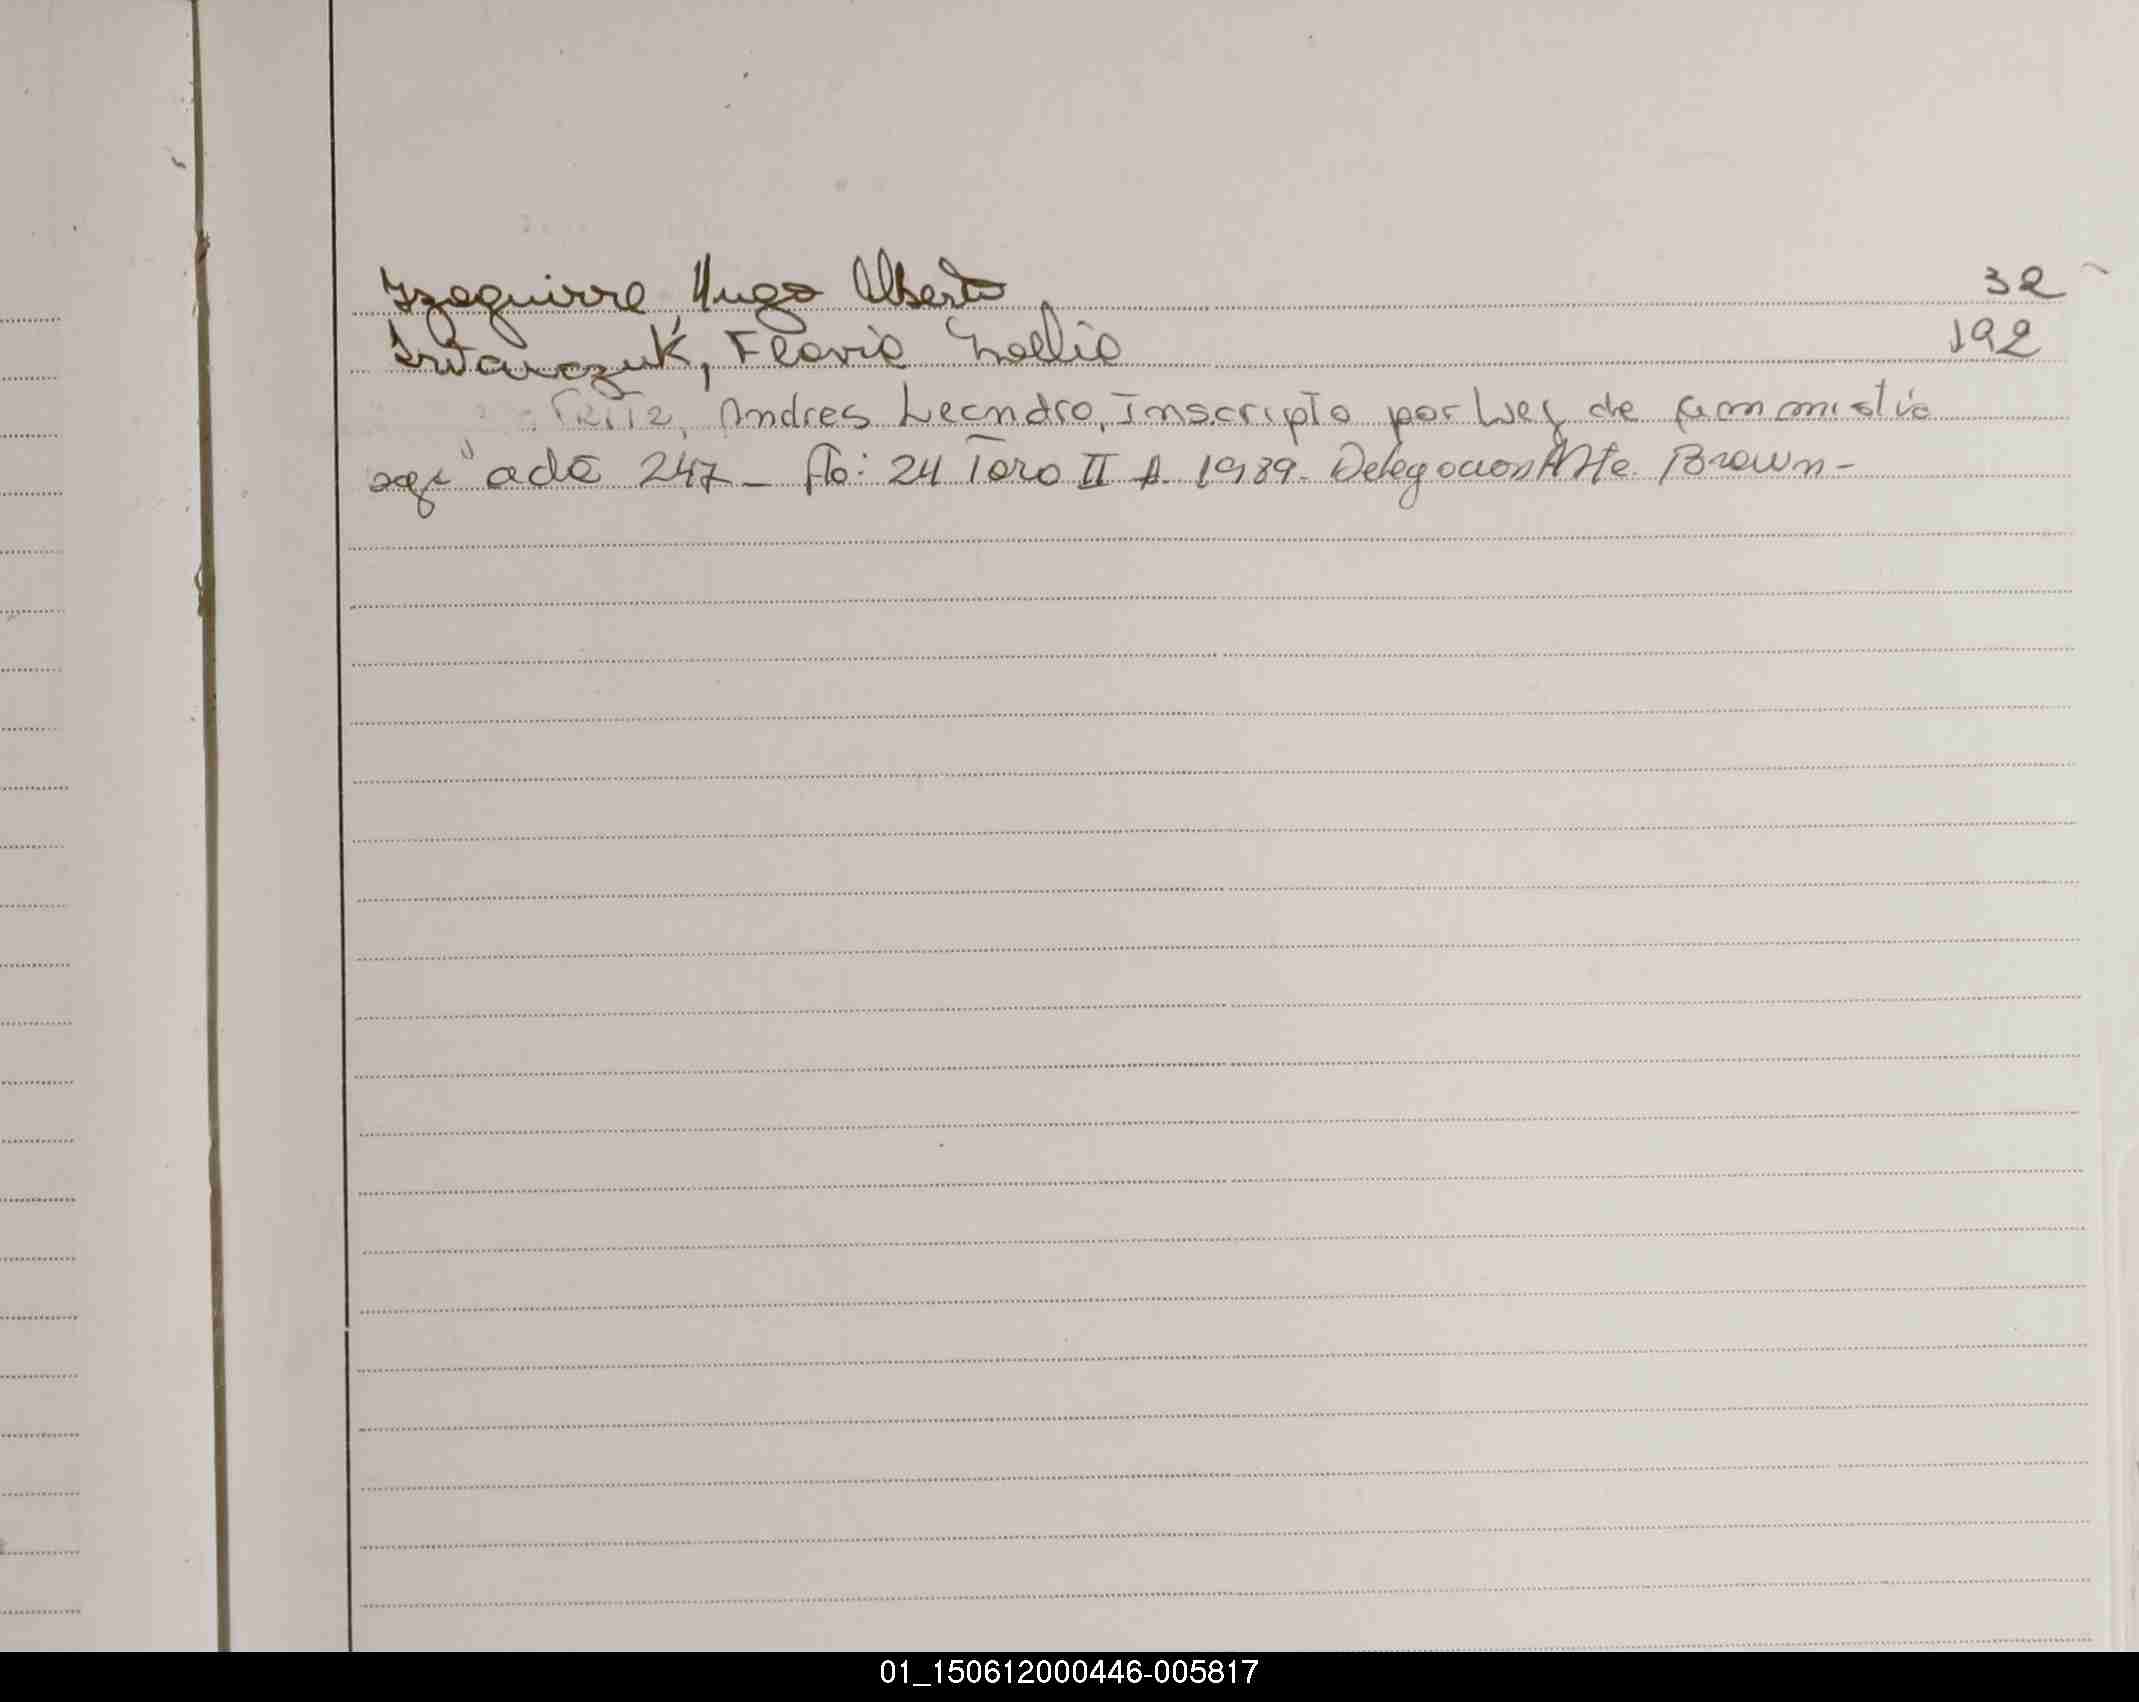 Yzaguirre Hugo Alberto 32
Iwanczuk, Flavia 192
Andres Leandro, Inscripto por Ley de ammnistia
acta 247 - fto: 24 Tomo II A 1989. Delegacion Alte. Brown -
01_150612000446-005817